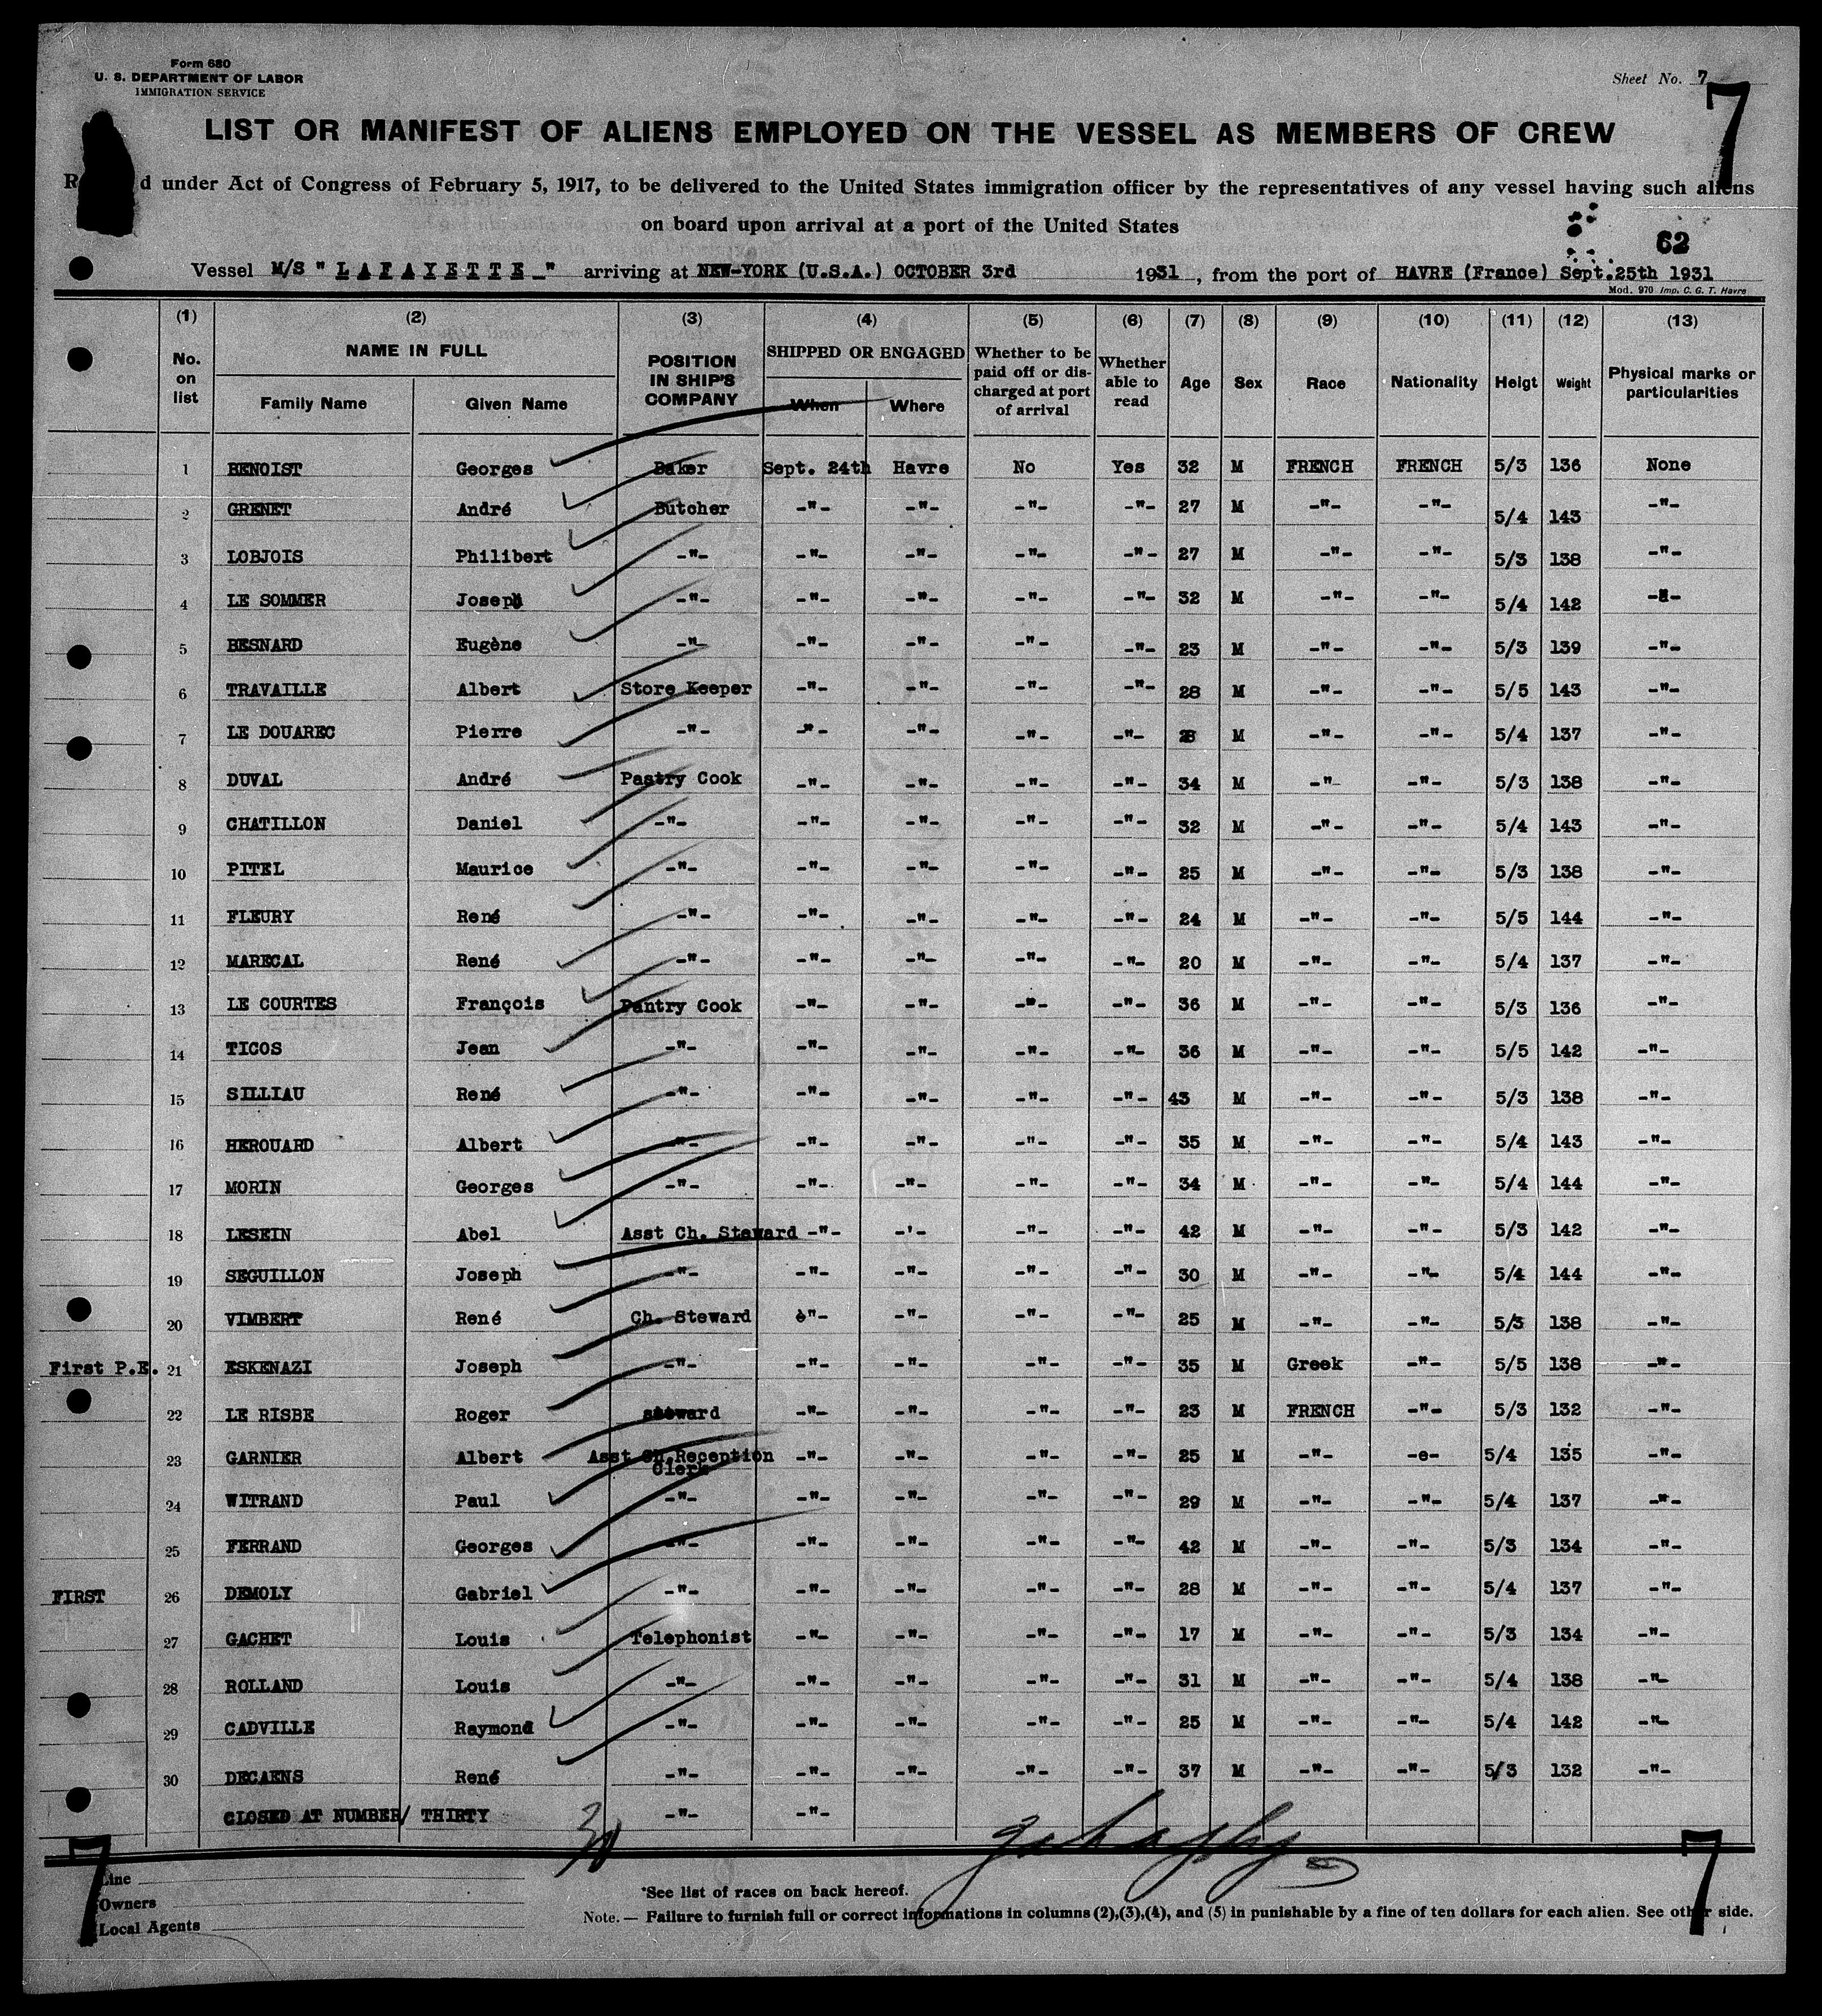 Form 680
U. S. DEPARTMENT OF LABOR
IMMIGRATION SERVICE
Sheet No. 7
7
LIST OR MANIFEST OF ALIENS EMPLOYED ON THE VESSEL AS MEMBERS OF CREW
d under Act of Congress of February 5, 1917, to be delivered to the United States immigration officer by the representatives of any vessel having such aliens
on board upon arrival at a port of the United States
62
Vessel M/S " LAFAYETTE " arriving at NEW-YORK (U.S.A.) OCTOBER 3rd 1931, from the port of HAVRE (France) Sept.25th 1931
Mod. 970 Imp. C. G. T. Havre
(1) (2) (3) (4) (5) (6) (7) (8) (9) (10) (11) (12) (13)
No. on list NAME IN FULL Family Name Given Name POSITION IN SHIP'S COMPANY SHIPPED OR ENGAGED When Where Whether to be paid off or discharged at port of arrival Whether able to read Age Sex Race Nationality Heigt Weight Physical marks or particularities
1 BENOIST Georges Baker Sept. 24th Havre No Yes 32 M FRENCH FRENCH 5/3 136 None
2 GRENET André Butcher -"- -"- -"- -"- 27 M -"- -"- 5/4 143 -"-
3 LOBJOIS Philibert -"- -"- -"- -"- -"- 27 M -"- -"- 5/3 138 -"-
4 LE SOMMER Joseph -"- -"- -"- -"- -"- 32 M -"- -"- 5/4 142 -"-
5 BESNARD Eugène -"- -"- -"- -"- -"- 23 M -"- -"- 5/3 139 -"-
6 TRAVAILLE Albert Store Keeper -"- -"- -"- -"- 28 M -"- -"- 5/5 143 -"-
7 LE DOUAREC Pierre -"- -"- -"- -"- -"- M -"- -"- 5/4 137 -"-
8 DUVAL André Pastry Cook -"- -"- -"- -"- 34 M -"- -"- 5/3 138 -"-
9 CHATILLON Daniel -"- -"- -"- -"- -"- 32 M -"- -"- 5/4 143 -"-
10 PITEL Maurice -"- -"- -"- -"- -"- 25 M -"- -"- 5/3 138 -"-
11 FLEURY René -"- -"- -"- -"- -"- 24 M -"- -"- 5/5 144 -"-
12 MARECAL René -"- -"- -"- -"- -"- 20 M -"- -"- 5/4 137 -"-
13 LE COURTES François Pantry Cook -"- -"- -"- -"- 36 M -"- -"- 5/3 136 -"-
14 TICOS Jean -"- -"- -"- -"- -"- 36 M -"- -"- 5/5 142 -"-
15 SILLIAU René -"- -"- -"- -"- -"- 43 M -"- -"- 5/3 138 -"-
16 HEROUARD Albert -"- -"- -"- -"- -"- 35 M -"- -"- 5/4 143 -"-
17 MORIN Georges -"- -"- -"- -"- -"- 34 M -"- -"- 5/4 144 -"-
18 LESEIN Abel Asst Ch. Steward -"- -'- -"- -"- 42 M -"- -"- 5/3 142 -"-
19 SEGUILLON Joseph -"- -"- -"- -"- -"- 30 M -"- -"- 5/4 144 -"-
20 VIMBERT René Ch. Steward è"- -"- -"- -"- 25 M -"- -"- 5/3 138 -"-
First P.E. 21 ESKENAZI Joseph -"- -"- -"- -"- -"- 35 M Greek -"- 5/5 138 -"-
22 LE RISBE Roger steward -"- -"- -"- -"- 23 M FRENCH -"- 5/3 132 -"-
23 GARNIER Albert Asst Ch.Reception Clerk -"- -"- -"- -"- 25 M -"- -e- 5/4 135 -"-
24 WITRAND Paul -"- -"- -"- -"- -"- 29 M -"- -"- 5/4 137 -"-
25 FERRAND Georges -"- -"- -"- -"- -"- 42 M -"- -"- 5/3 134 -"-
FIRST 26 DEMOLY Gabriel -"- -"- -"- -"- -"- 28 M -"- -"- 5/4 137 -"-
27 GACHET Louis Telephonist -"- -"- -"- -"- 17 M -"- -"- 5/3 134 -"-
28 ROLLAND Louis -"- -"- -"- -"- -"- 31 M -"- -"- 5/4 138 -"-
29 CADVILLE Raymond -"- -"- -"- -"- -"- 25 M -"- -"- 5/4 142 -"-
30 DECAENS René -"- -"- -"- -"- -"- 37 M -"- -"- 5/3 132 -"-
CLOSED AT NUMBER/ THIRTY -"- -"-
30
7 7
Line
Owners
Local Agents
*See list of races on back hereof.
Note. — Failure to furnish full or correct informations in columns (2),(3),(4), and (5) in punishable by a fine of ten dollars for each alien. See other side.